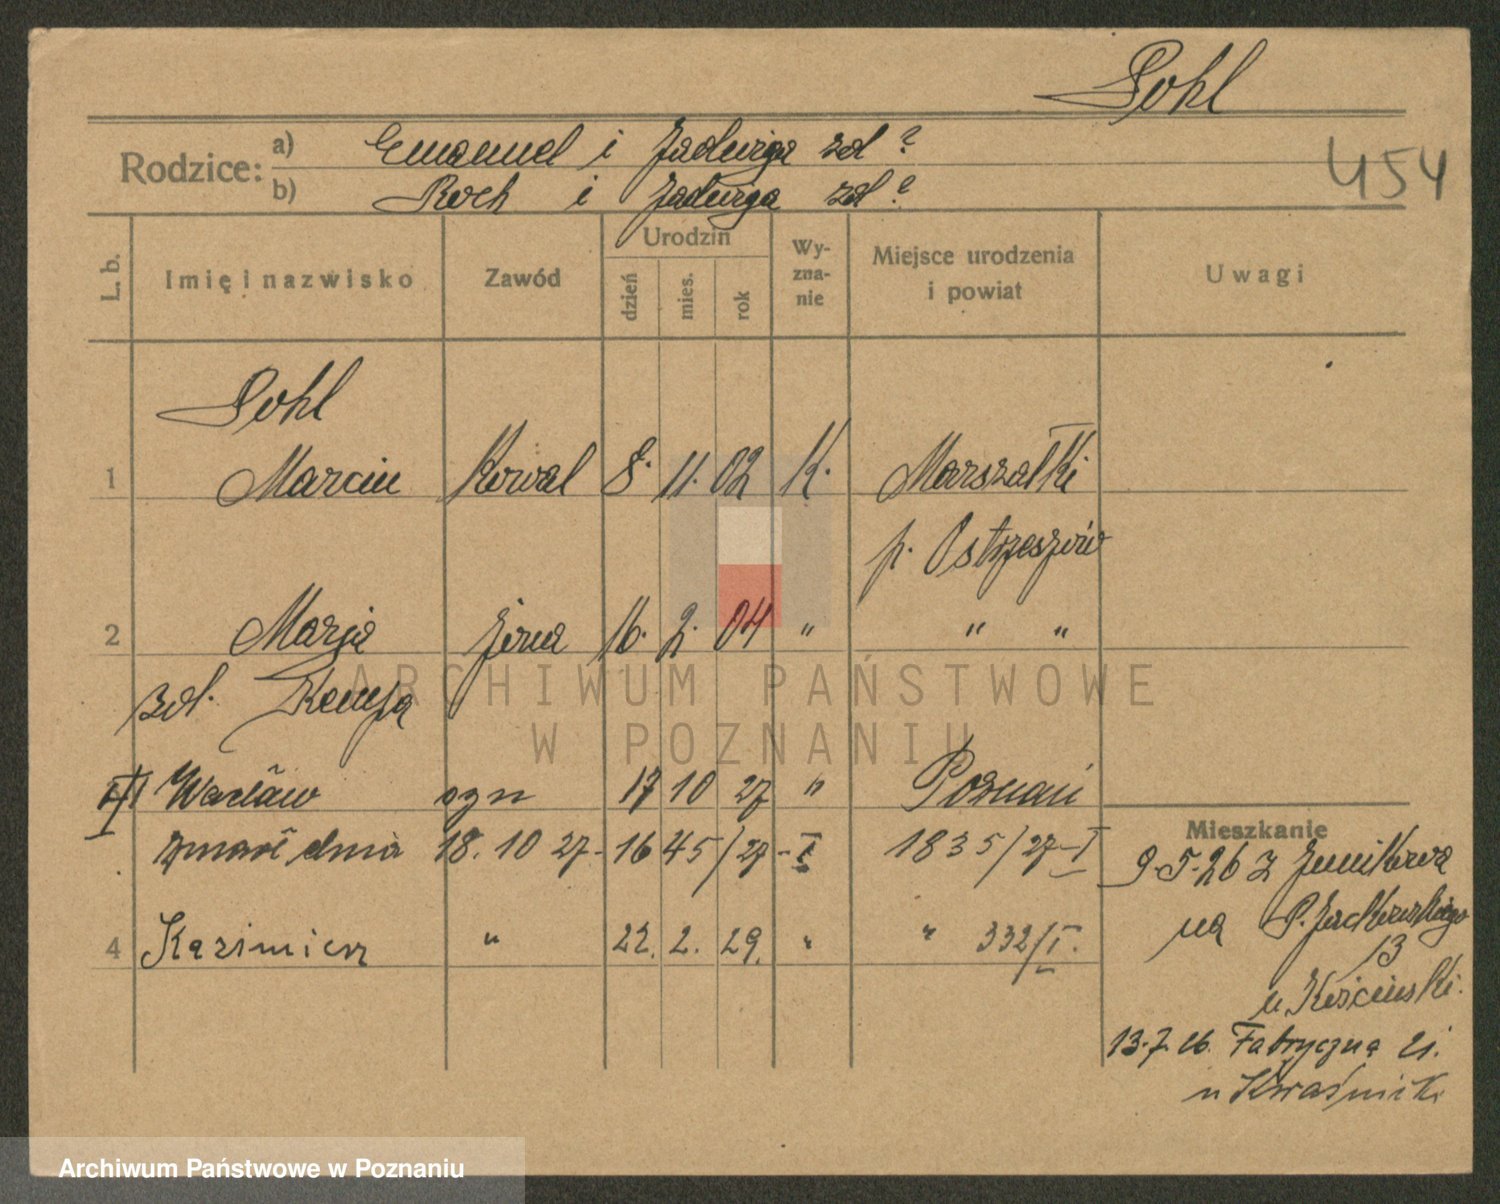 Pohl
454
Rodzice: a) Emanuel i Jadwiga zd ?
b) Roch i Jadwiga zd ?
L. b. Imię i nazwisko Zawód Urodzin dzień mies. rok Wy-zna-nie Miejsce urodzenia i powiat Uwagi
Pohl
1 Marcin Kowal 8. 11. 02 K. Marszałki
p. Ostrzeszów
2 Marja żona 16. 2. 04 " " "
zd. Kempa
Wacław syn 17 10 27 " Poznań
zmarł dnia 18. 10 27 - 1645/27 - I 1835/27 - I
4 Kazimierz " 22. 2. 29. " " 332/I.
Mieszkanie
9.5.26 z Junikowa
na P. Jackowskiego
13
u Kościuski.
13.7.26. Fabryczna 21.
u Kwaśnik
ARCHIWUM PAŃSTWOWE
W POZNANIU
Archiwum Państwowe w Poznaniu